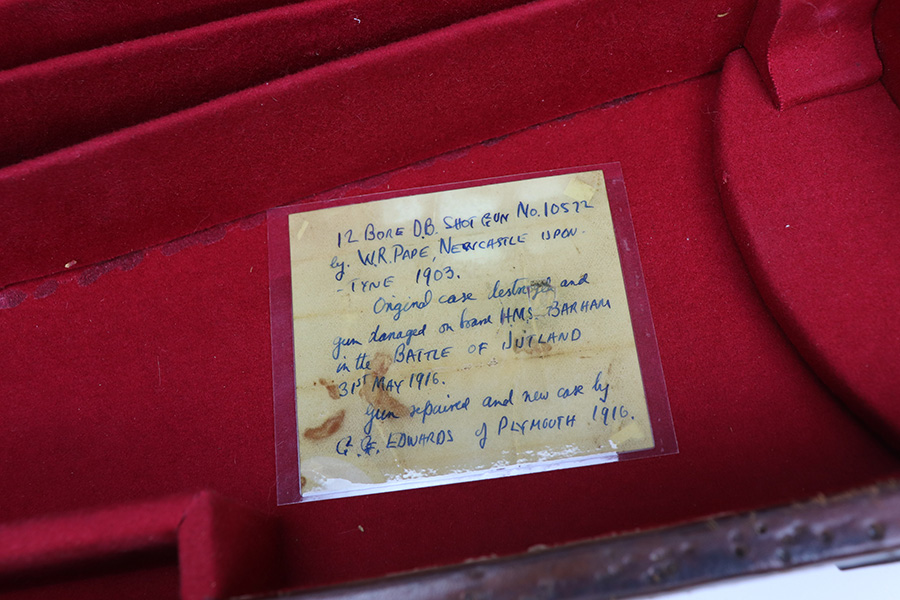 12 BORE D.B. SHOTGUN No.10572
by. W.R. PAPE, NEWCASTLE UPON.
-TYNE 1903.
Original case destroyed and
gun damaged on board H.M.S. BARHAM
in the BATTLE OF JUTLAND
31ST MAY 1916.
Gun repaired and new case by
EDWARDS of PLYMOUTH 1916.